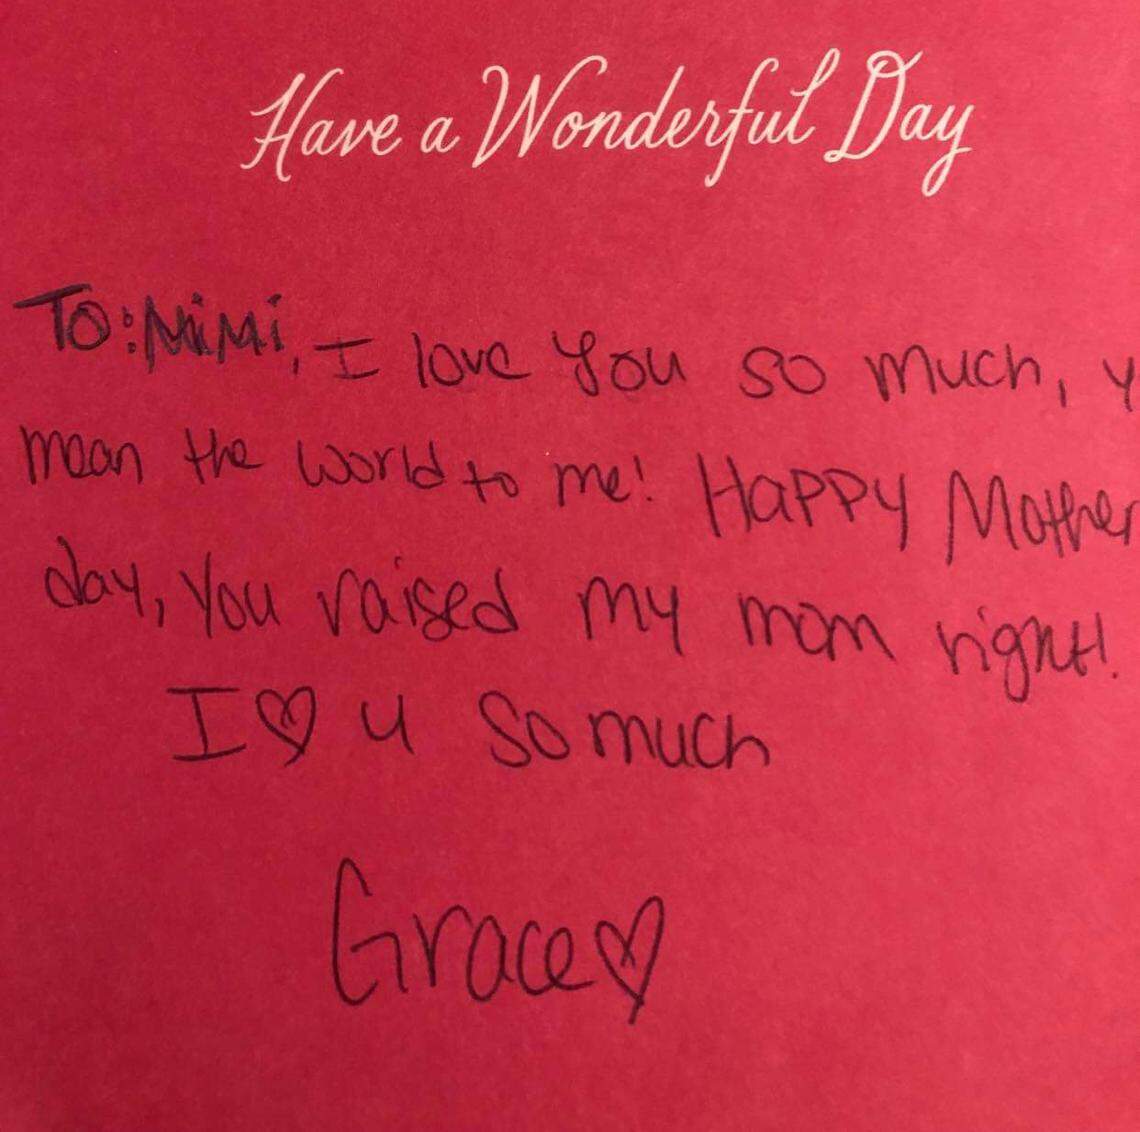 Have a Wonderful Day
To: Mimi, I love you so much, y
mean the world to me! Happy Mother
day, you raised my mom right!
I ♡ u so much
Grace ♡